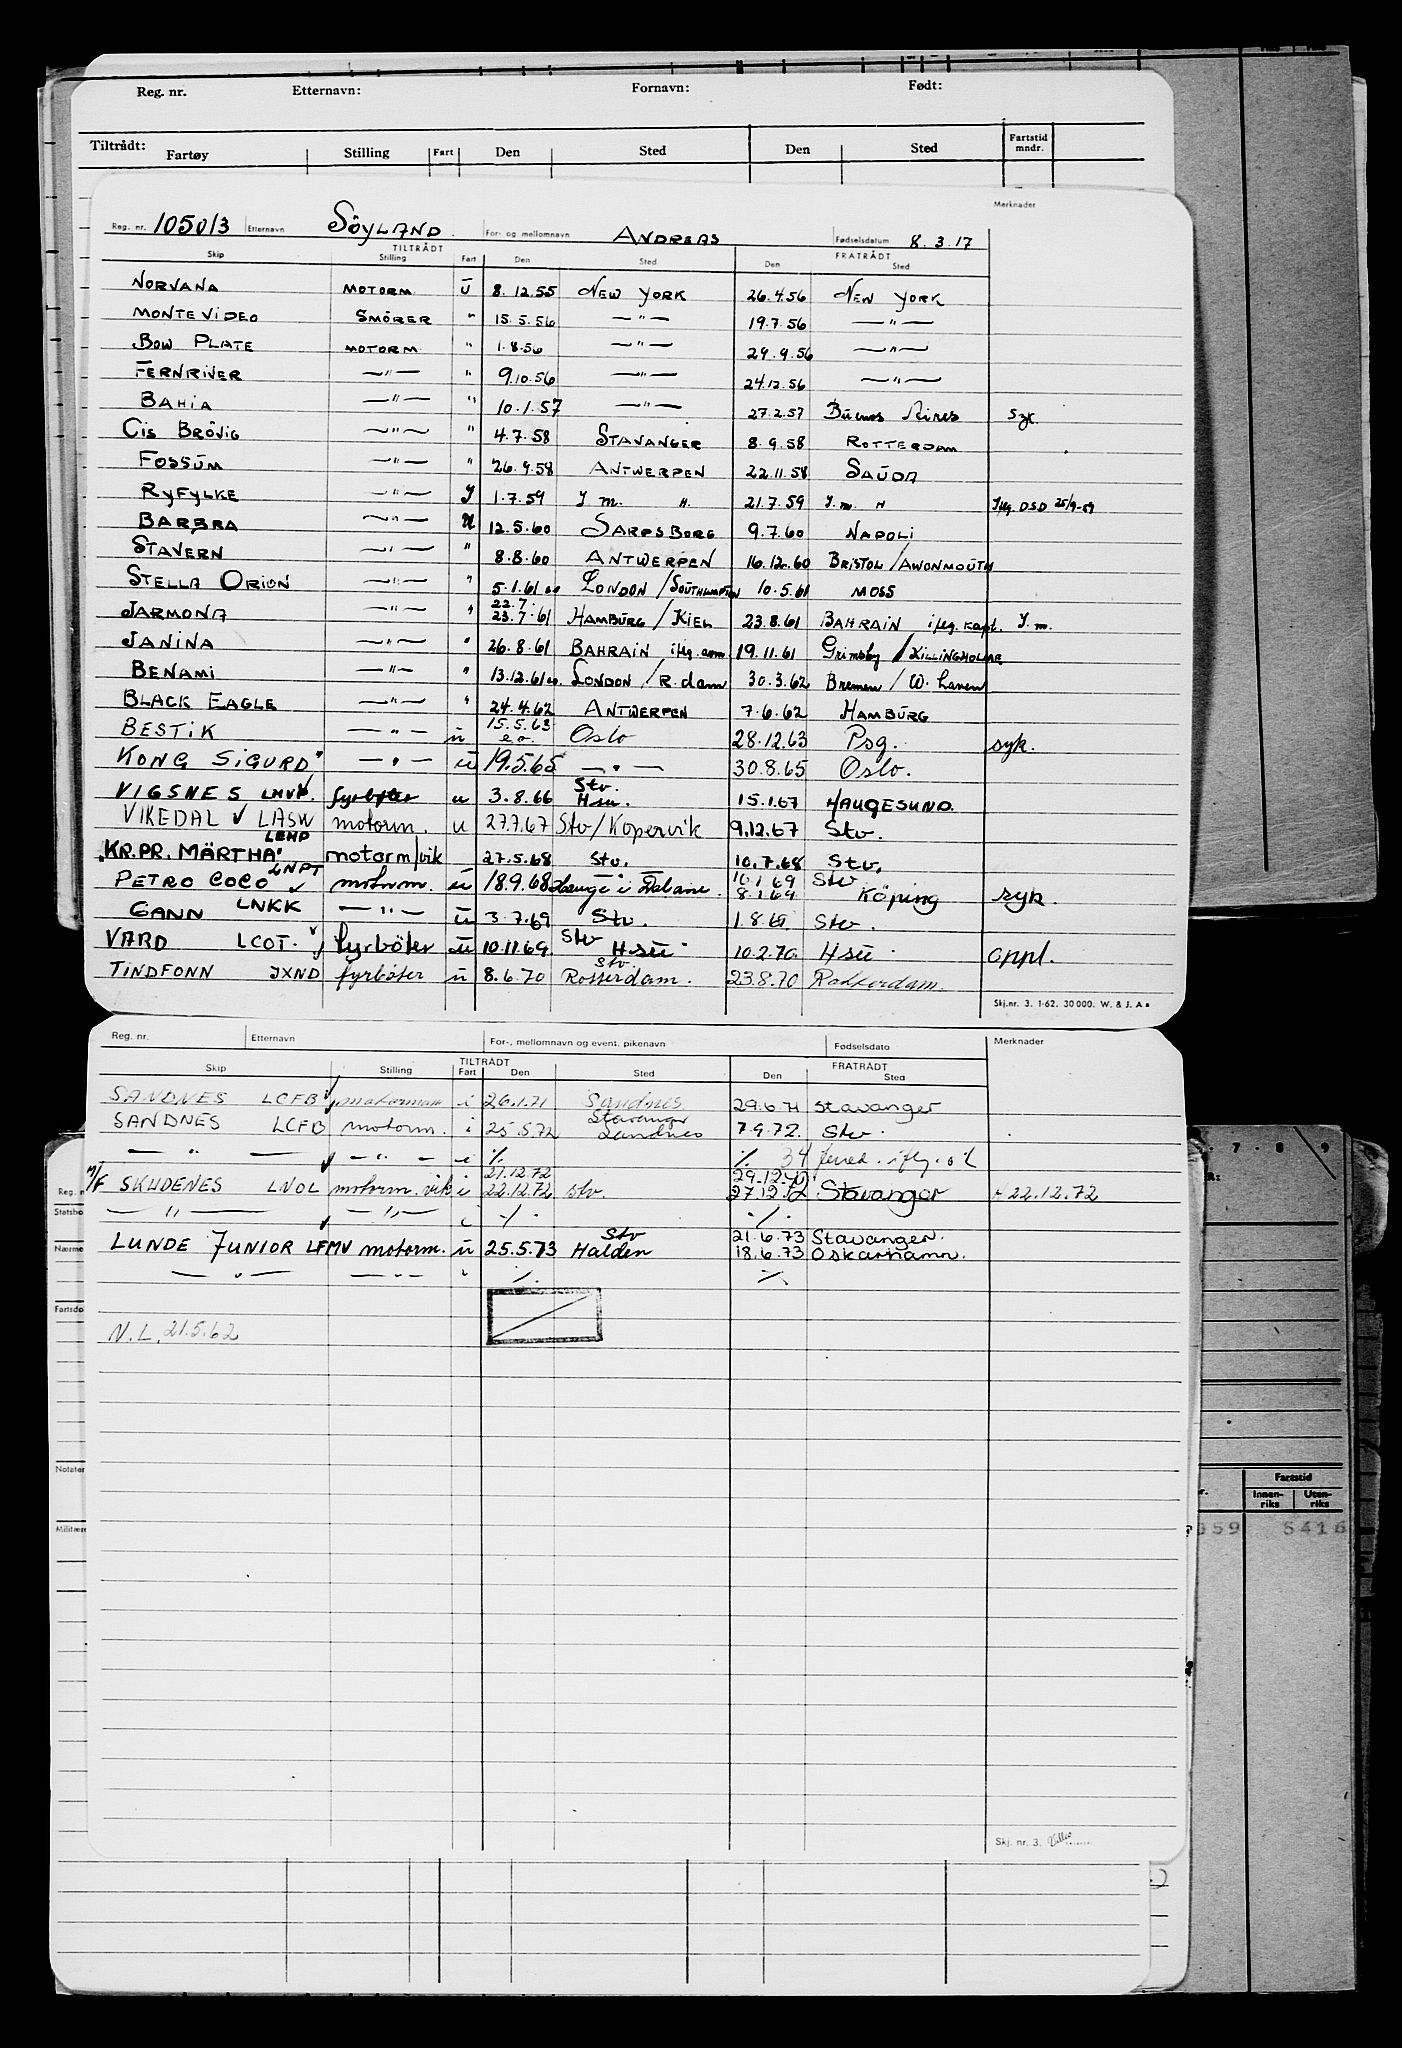 Reg. nr. Etternavn: Fornavn: Født:
Tiltrådt: Fartøy Stilling Fart Den Sted Den Sted Fartstid mndr.
Merknader
Reg. nr. 105013 Etternavn SÖYLAND. For- og mellomnavn ANDREAS Fødselsdatum 8.3.17
TILTRÅDT FRATRÅDT
Skip Stilling Fart Den Sted Den Sted
NORVANA MOTORM U 8.12.55 NEW YORK 26.4.56 NEW YORK
MONTEVIDEO SMÖRER " 15.5.56 —"— 19.7.56 —"—
BOW PLATE MOTORM " 1.8.56 —"— 29.9.56 —"—
FERNRIVER —"— " 9.10.56 —"— 24.12.56 —"—
BAHIA —"— " 10.1.57 —"— 27.2.57 Buenos Aires syk.
CIS BRÖVIG —"— " 4.7.58 STAVANGER 8.9.58 ROTTERDAM
FOSSUM —"— " 26.9.58 ANTWERPEN 22.11.58 SAUDA
RYFYLKE —"— I 1.7.59 I.m. H. 21.7.59 I.m. H Iflg. DSD 25/9-59
BARBRA —"— U 12.5.60 SARPSBORG 9.7.60 NAPOLI
STAVERN —"— " 8.8.60 ANTWERPEN 16.12.60 BRISTOL/AWONMOUTH
STELLA ORION —"— " 5.1.61 ca LONDON/SOUTHAMPTON 10.5.61 MOSS
JARMONA —"— " 22.7. 23.7.61 HAMBURG/KIEL 23.8.61 BAHRAIN iflg. kapt. I.m.
JANINA —"— " 26.8.61 BAHRAIN iflg. 19.11.61 Grimsby/KILLINGHOLME
BENAMI —"— " 13.12.61 ca. LONDON/R.dam 30.3.62 Bremen/W.haven
BLACK EAGLE —"— " 24.4.62 ANTWERPEN 7.6.62 HAMBURG
BESTIK —"— u 15.5.63 Oslo 28.12.63 Psg. syk.
KONG SIGURD" —"— u 19.5.65 —"— 30.8.65 Oslo.
VIGSNES LMVV. fyrbøter u 3.8.66 Stv. Hsu. 15.1.67 HAUGESUND.
VIKEDAL LASW motorm. u 27.7.67 Stv/Kopervik 9.12.67 Stv.
"KR.PR. MÄRTHA" LEHP motorm/vik 27.5.68 Stv. 10.7.68 Stv.
PETRO COCO LNPT motorm. u 18.9.68 Hauge i Dalane. 10.1.69 8.1.69 Stv Köping syk.
GANN LNKK —"— u 3.7.69 Stv. 1.8.69 Stv.
VARD LCOT. fyrböter u 10.11.69. Stv Hsu 10.2.70. Hsu oppl.
TINDFONN JXND fyrböter u 8.6.70 Stv. Rotterdam. 23.8.70 Rotterdam.
Skj.nr. 3. 1-62. 30 000. W. & J. A s
Reg. nr. Etternavn For-, mellomnavn og event. pikenavn Fødselsdato Merknader
TILTRÅDT FRATRÅDT
Skip Stilling Fart Den Sted Den Sted
SANDNES LCFB motormann i 26.1.71 Sandnes 29.6.71 Stavanger
SANDNES LCFB motorm. i 25.5.72 Stavanger Sandnes 7.9.72. Stv.
— " — — " — i % % 34
M/F SKUDENES LNOL motorm. vik i 21.12.72 22.12.72 Stv. 29.12.72 27.12.72 Stavanger 22.12.72
—"— —"— i ./. ./.
LUNDE JUNIOR LFMV motorm. u 25.5.73 Stv Halden 21.6.73 18.6.73 Stavanger. Oskarhamn.
— " — — " — " ./. ./.
N.L. 21.5.62
Skj. nr. 3.
Reg. n
Statsbo
Nærme
Fartsdo
Notater
Militære
7 - 8 - 9
Fartstid
Innen-riks Uten-riks
059 5416